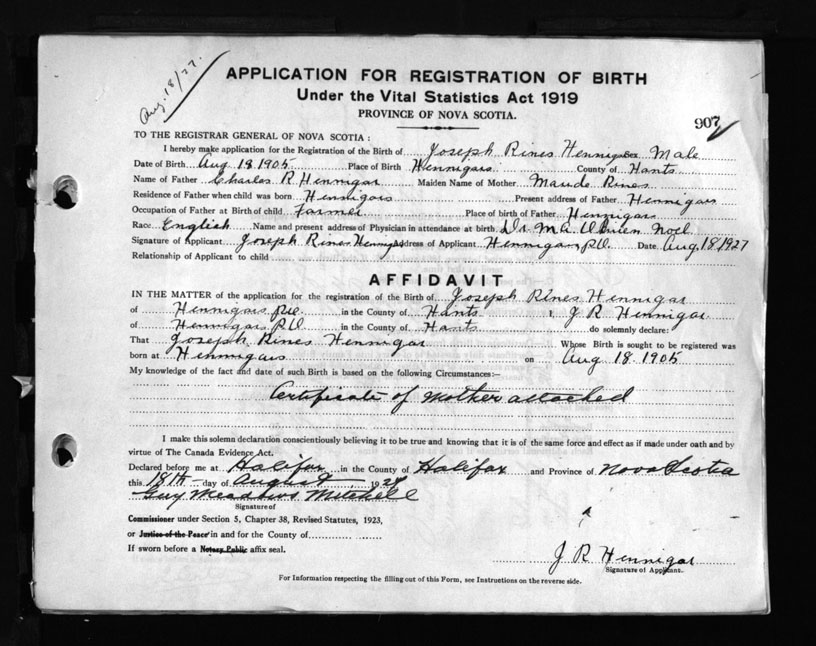 Aug. 18/27.
APPLICATION FOR REGISTRATION OF BIRTH
Under the Vital Statistics Act 1919
PROVINCE OF NOVA SCOTIA.
907
TO THE REGISTRAR GENERAL OF NOVA SCOTIA :
I hereby make application for the Registration of the Birth of Joseph Rines Hennigar Sex Male
Date of Birth Aug 18 1905 Place of Birth Hennigars County of Hants
Name of Father Charles R Hennigar Maiden Name of Mother Maude Rines
Residence of Father when child was born Hennigars Present address of Father Hennigars
Occupation of Father at Birth of child Farmer Place of birth of Father Hennigars
Race English Name and present address of Physician in attendance at birth Dr M.A. O'Brien Noel
Signature of Applicant Joseph Rines Hennigar Address of Applicant Hennigars P.O. Date Aug. 18 1927
Relationship of Applicant to child
AFFIDAVIT
IN THE MATTER of the application for the registration of the Birth of Joseph Rines Hennigar
of Hennigars P.O. in the County of Hants I, J R Hennigar
of Hennigars P.O in the County of Hants do solemnly declare:
That Joseph Rines Hennigar Whose Birth is sought to be registered was
born at Hennigars on Aug 18. 1905
My knowledge of the fact and date of such Birth is based on the following Circumstances:—
Certificate of Mother attached
I make this solemn declaration conscientiously believing it to be true and knowing that it is of the same force and effect as if made under oath and by
virtue of The Canada Evidence Act.
Declared before me at Halifax in the County of Halifax and Province of Nova Scotia
this 18th day of August 192
Guy Meadows Mitchell
Signature of
Commissioner under Section 5, Chapter 38, Revised Statutes, 1923,
or Justice of the Peace in and for the County of
If sworn before a Notary Public affix seal.
J R Hennigar
Signature of Applicant.
For Information respecting the filling out of this Form, see Instructions on the reverse side.